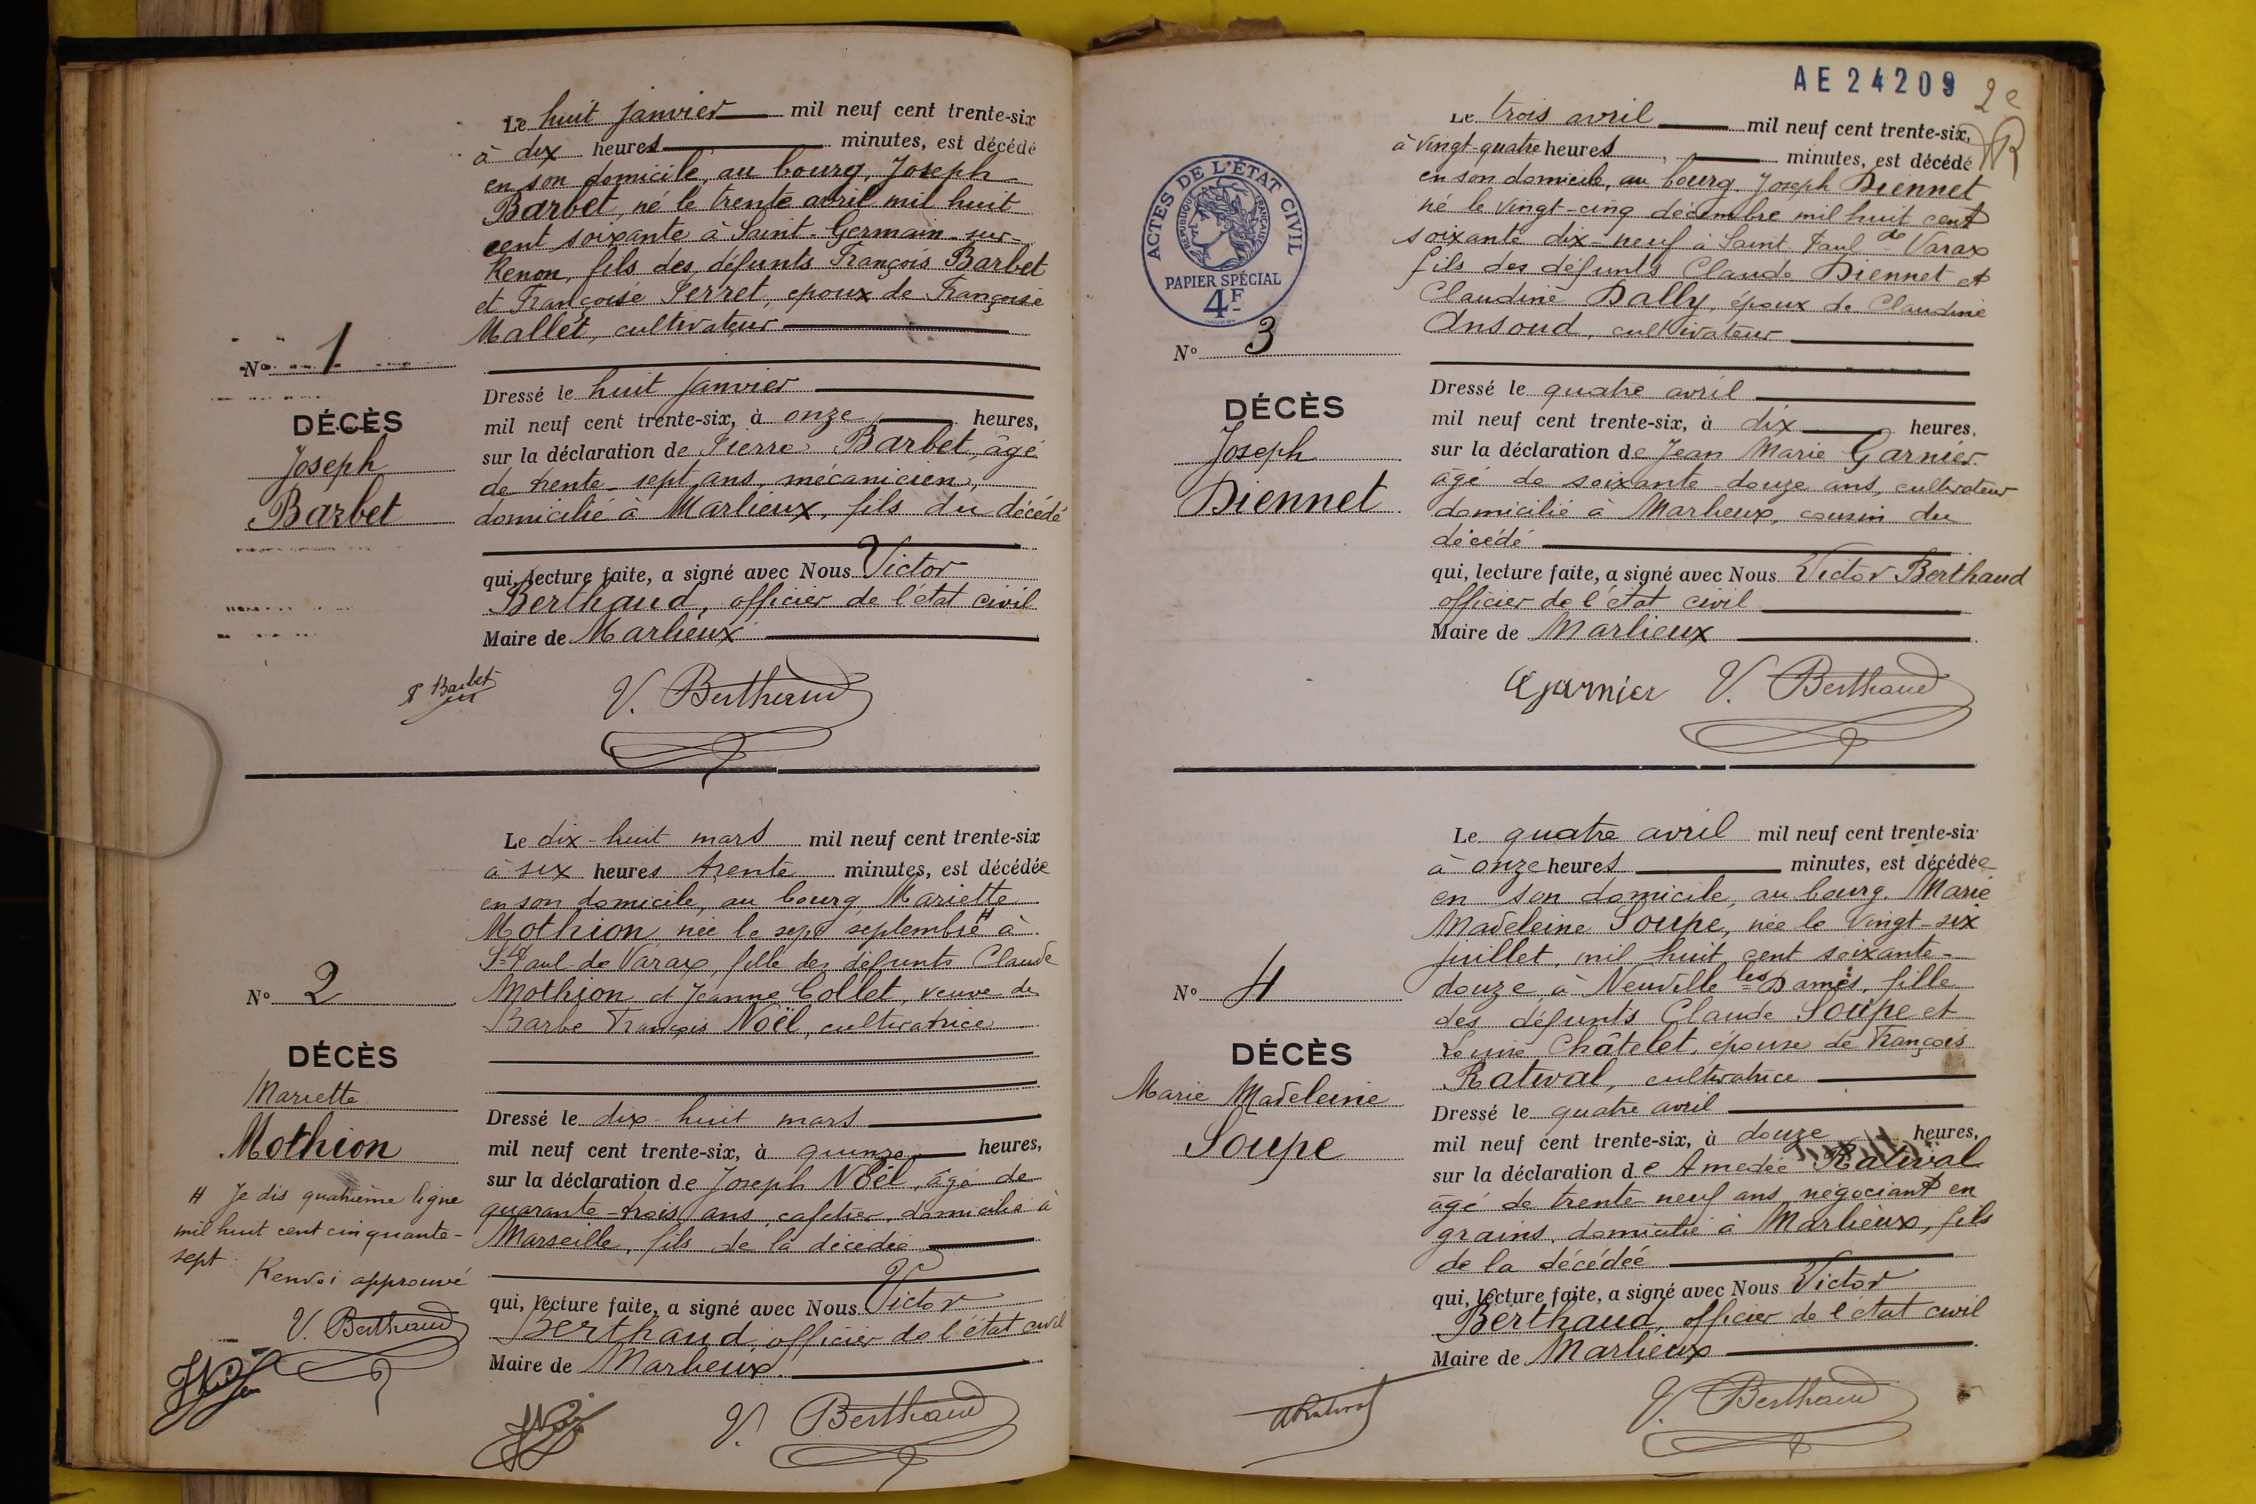 Le huit janvier mil neuf cent trente-six
à dix heures minutes, est décédé
en son domicile, au bourg, Joseph
Barbet, né le trente avril mil huit
cent soixante à Saint-Germain-sur-
Renon, fils des défunts François Barbet
et Françoise Perret, époux de Françoise
Mallet, cultivateur
N° 1
DÉCÈS
Joseph
Barbet
Dressé le huit janvier
mil neuf cent trente-six, à onze heures,
sur la déclaration de Pierre Barbet, âgé
de trente-sept ans, mécanicien,
domicilié à Marlieux, fils du décédé
qui, lecture faite, a signé avec Nous Victor
Berthaud, officier de l'état civil
Maire de Marlieux
P Barbet
V. Berthaud
Le dix-huit mars mil neuf cent trente-six
à six heures trente minutes, est décédée
en son domicile, au bourg Mariette
Mothion née le sept septembre H à
St Paul de Varax, fille des défunts Claude
Mothion et Jeanne Collet, veuve de
Barbe François Noël, cultivatrice
N° 2
DÉCÈS
Mariette
Mothion
H Je dis quatrième ligne
mil huit cent cinquante-
sept
Renvoi approuvé
V. Berthaud
Dressé le dix-huit mars
mil neuf cent trente-six, à quinze heures,
sur la déclaration de Joseph Noël, âgé de
quarante-trois ans, cafetier, domicilié à
Marseille, fils de la décédée
qui, lecture faite, a signé avec Nous Victor
Berthaud, officier de l'état civil
Maire de Marlieux
V. Berthaud
AE24209
2e
ACTES DE L'ÉTAT CIVIL
RÉPUBLIQUE FRANÇAISE
PAPIER SPÉCIAL
4F
Le trois avril mil neuf cent trente-six,
à vingt-quatre heures minutes, est décédé
en son domicile, au bourg Joseph Diennet
né le vingt-cinq décembre mil huit cent
soixante dix-neuf à Saint Paul de Varax
fils des défunts Claude Diennet et
Claudine Dally, époux de Claudine
Ansoud, cultivateur
N° 3
DÉCÈS
Joseph
Diennet
Dressé le quatre avril
mil neuf cent trente-six, à dix heures,
sur la déclaration de Jean Marie Garnier
âgé de soixante-douze ans, cultivateur
domicilié à Marlieux, cousin du
décédé
qui, lecture faite, a signé avec Nous Victor Berthaud
officier de l'état civil
Maire de Marlieux
Garnier V. Berthaud
Le quatre avril mil neuf cent trente-six
à onze heures minutes, est décédée
en son domicile, au bourg, Marie
Madeleine Soupe, née le vingt-six
juillet, mil huit cent soixante-
douze, à Neuville les Dames, fille
des défunts Claude Soupe et
Louise Châtelet, épouse de François
Ratival, cultivatrice
N° 4
DÉCÈS
Marie Madeleine
Soupe
Dressé le quatre avril
mil neuf cent trente-six, à douze heures,
sur la déclaration de Amedée Ratival
âgé de trente-neuf ans, négociant en
grains, domicilié à Marlieux, fils
de la décédée
qui, lecture faite, a signé avec Nous Victor
Berthaud, officier de l'état civil
Maire de Marlieux
ARatival
V. Berthaud